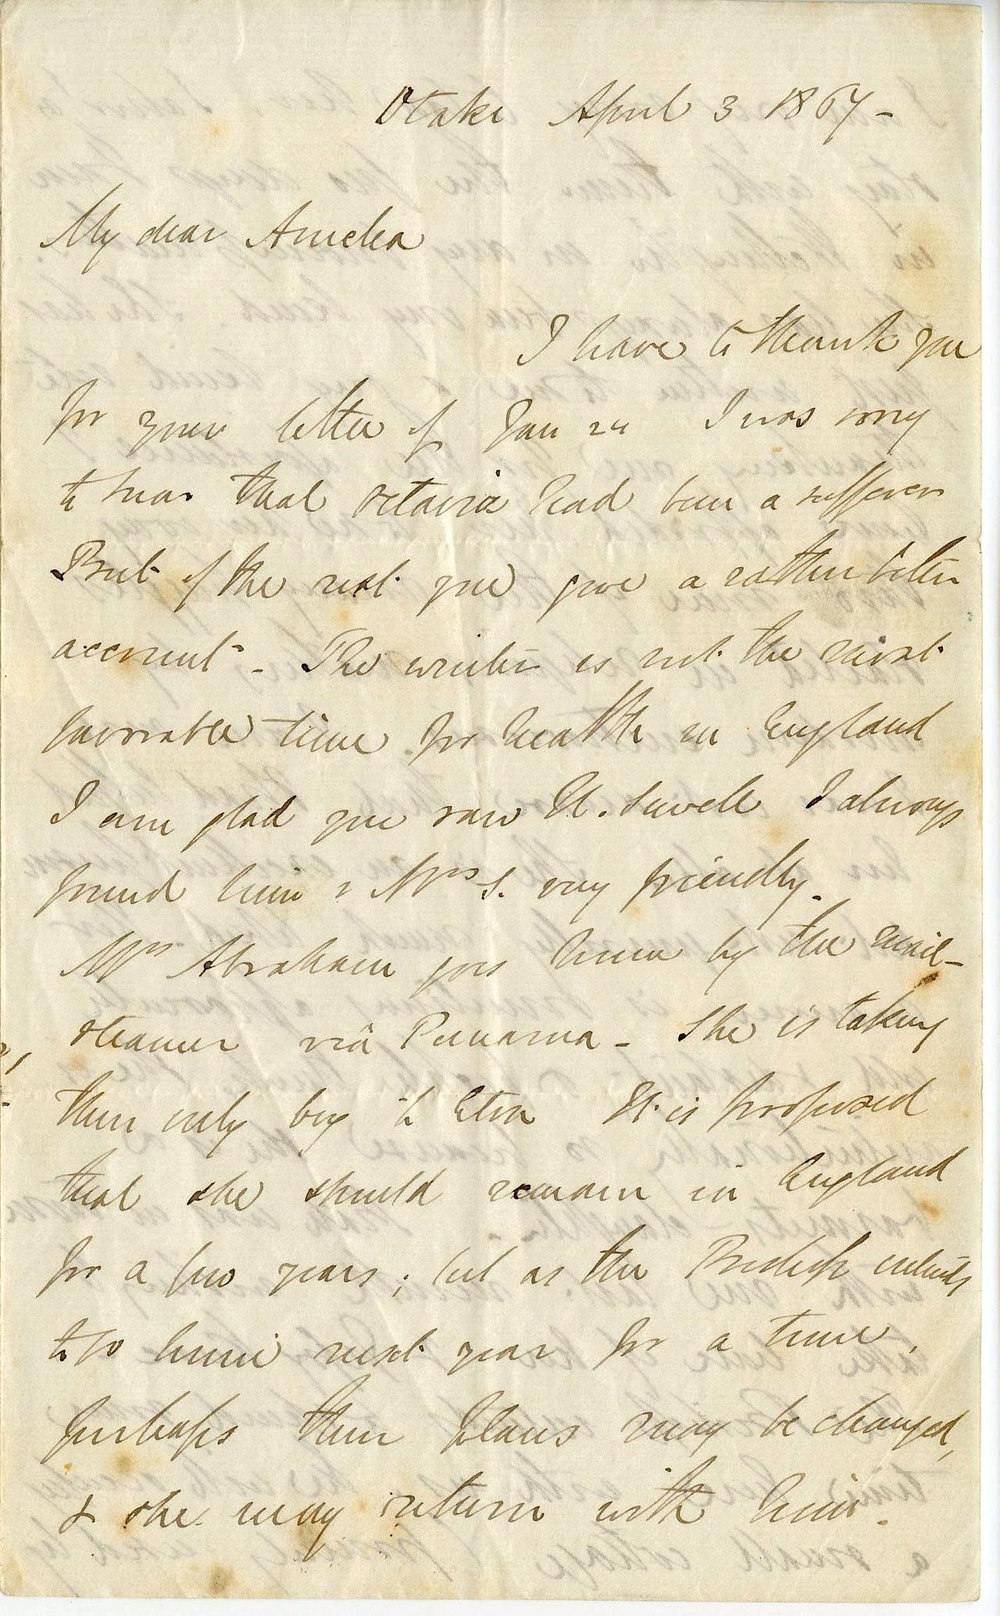 Otaki April 3 1867-
My dear Amelia
I have to thank you
for your letter of Jan 24 I was sorry
to hear that Octavia had been a sufferer
But of the rest you give a rather better
account - The winter is not the most
favorable time for health in England
I am glad you saw H. Sewell I always
found him & Mrs S. very friendly.
Mrs Abraham goes home by the mail-
steamer viâ Panama - She is taking
their only boy to Eton It is proposed
that she should remain in England
for a few years; but as the Bishop intends
to go home next year for a time,
perhaps their plans may be changed,
& she may return with him.